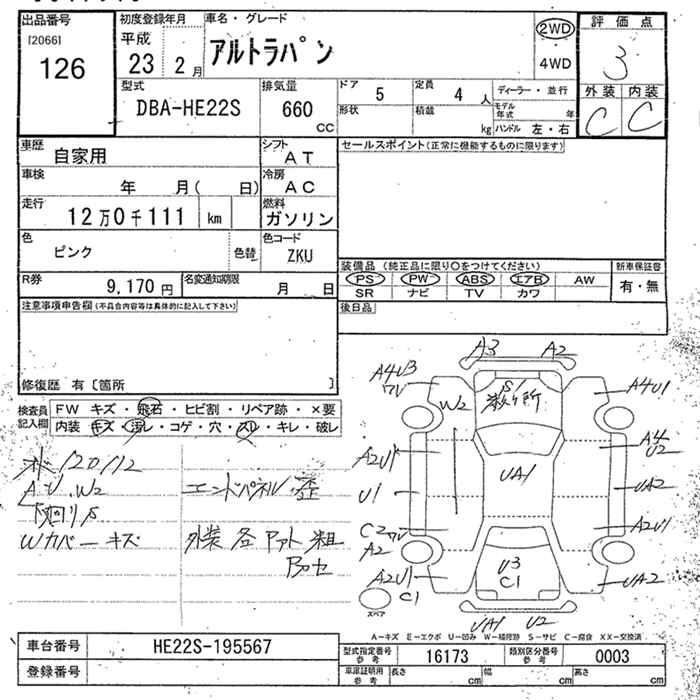 出品番号 [2066] 126
初度登録年月 平成 23 2 月
車名・グレード アルトラパン
2WD 4WD
評価点 3
外装 C 内装 C
型式 DBA-HE22S
排気量 660 CC
ドア 5
定員 4 人
形状
積載 kg
ディーラー・並行
モデル年式 年
ハンドル 左・右
車歴 自家用
シフト AT
セールスポイント(正常に機能するものに限ります)
車検 年 月( 日)
冷房 AC
走行 12万0千111 km
燃料 ガソリン
色 ピンク
色替
色コード ZKU
R券 9,170 円
名変通知期限 月 日
装備品 (純正品に限り○をつけてください)
PS PW ABS エアB AW
SR ナビ TV カワ
新車保証書 有・無
後日品
注意事項申告欄(不具合内容等は具体的に記入して下さい)
修復歴 有〔箇所 〕
検査員記入欄
FW キズ・飛石・ヒビ割・リペア跡・×要
内装 キズ・汚レ・コゲ・穴・スレ・キレ・破レ
120112
A.U.W2
下廻りS
Wカバーキズ
エンドパネル歪
外装各
A3 A2
A4U3
W2
S
A4U1
A2U1
UA1
A4
U2
U1
UA2
C2
A2
A2U1
A2U1
C1
U3
C1
UA2
UA1 U2
スペア
A-キズ E-エクボ U-凹み W-補修跡 S-サビ C-腐食 XX-交換済
車台番号 HE22S-195567
登録番号
型式指定番号 参考 16173
類別区分番号 参考 0003
車庫証明用 参考 長さ cm 幅 cm 高さ cm